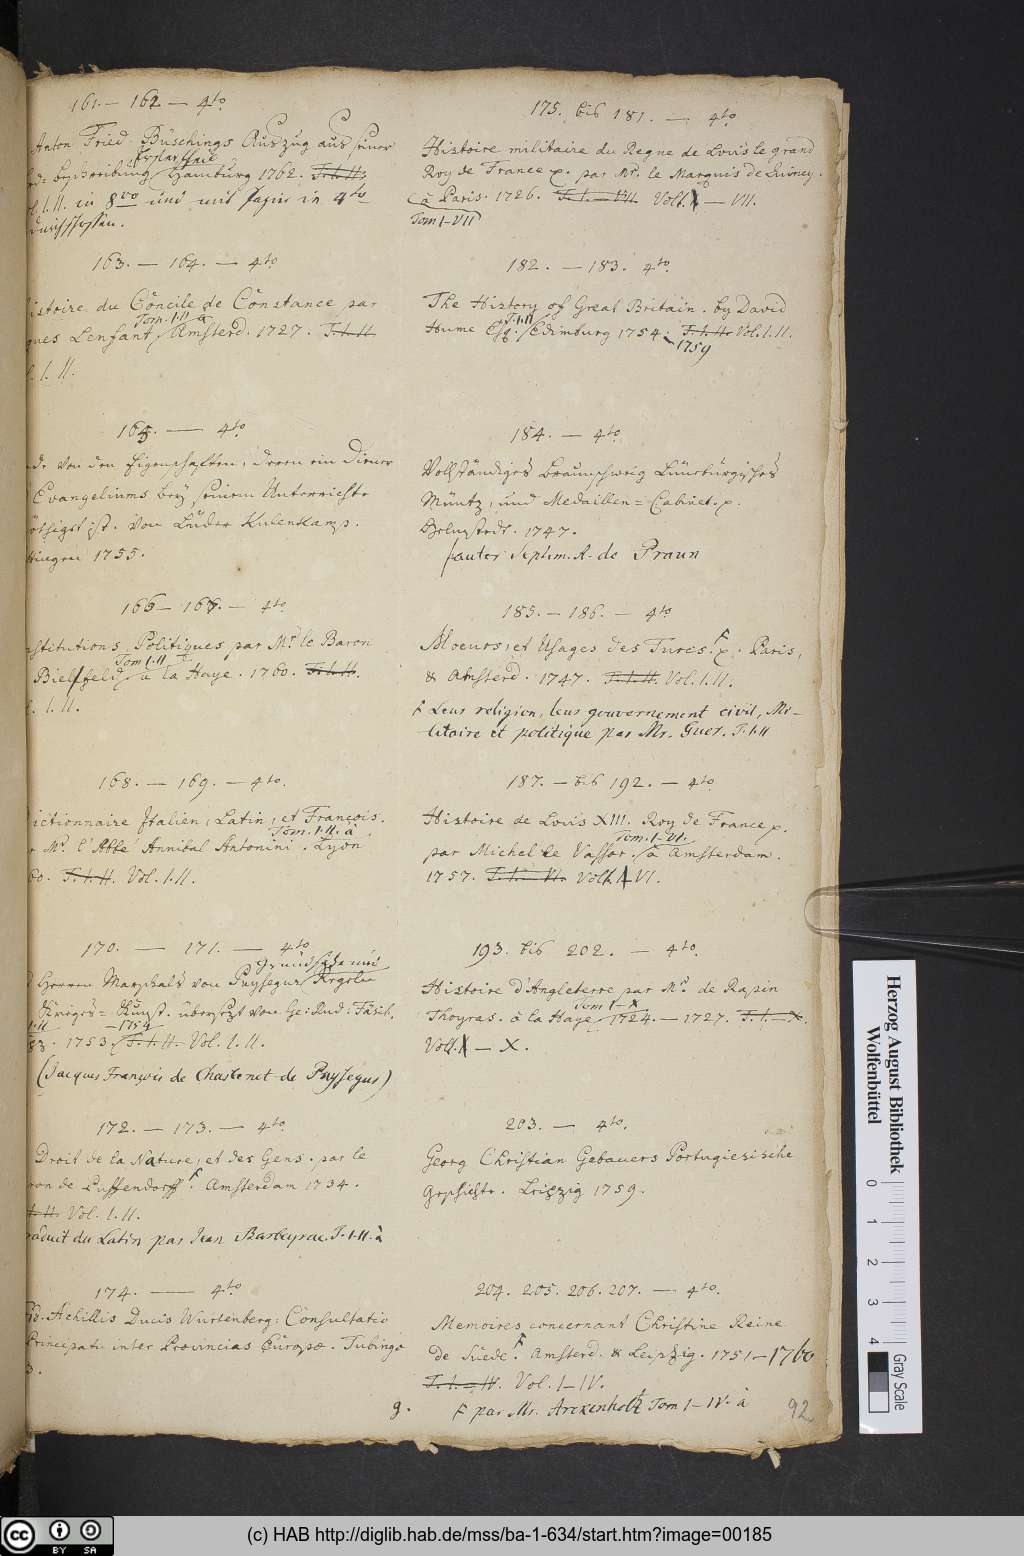 161. – 162 – 4to
Anton Fried. Büschings Auszug aus seiner
Erster Theil
Beschreibung Hamburg 1762. T. I. II.
I. II. in 8vo und mit Papier in 4to
durchschossen.
163. – 164. – 4to
istoire du Concile de Constance par
Tom. I. II à
ques Lenfant, Amsterd. 1727. T. I. II.
I. II.
165. – 4to
von den Eigenschaften, deren ein Diener
Evangeliums bey seinem Unterrichte
öthigt ist. von Lüder Kulenkamp.
ttingen 1755.
166 – 167. – 4to
stitutions Politiques par Mr. le Baron
Tom I. II
Bielfeld à la Haye. 1760. T. I. II.
I. II.
168. – 169. – 4to.
ictionnaire Italien, Latin, et François.
Tom. I. II. à
Mr. l'Abbé Annibal Antonini. Lyon
60. T. I. II. Vol. I. II.
170. – 171. – 4to
Grundsätze und
Herrn Marschals von Puysegur Regeln
Krieges-Kunst. übersezt von Ge. Rud. Fäsch.
I. II – 1754
1753. T. I. II. Vol. I. II.
(Jacques François de Chastenet de Puysegur)
172. – 173. – 4to
Droit de la Nature, et des Gens. par le
ron de Puffendorff. Amsterdam 1734.
T. I. II. Vol. I. II.
raduit du Latin par Jean Barbeyrac. T. I. II. à
174. – 4to.
Achillis Ducis Würtenberg: Consultatio
Principatu inter Provincias Europæ. Tubingæ
3.
175. bis 181. – 4to.
Histoire militaire du Regne de Louis le grand
Roy de France p. par Mr. le Marquis de Quincy.
à Paris. 1726. T. I. – VII. Voll. I – VII.
Tom I–VII
182. – 183. 4to.
The History of Great Britain. by David
T. I. II
Hume Esq. Edimburg 1754. T. I. II. Vol. I. II.
– 1759
184. – 4to
Vollständiges Braunschweig Lüneburgisches
Müntz, und Medaillen = Cabinet. p.
Helmstedt. 1747.
autor Septim. A. de Praun
185. – 186. – 4to
Moeurs, et Usages des Turcs. F p. Paris,
& Amsterd. 1747. T. I. II. Vol. I. II.
F Leur religion, leur gouvernement civil, Mi-
litaire et politique par Mr. Guer. T. I. II
187. – bis 192. – 4to
Histoire de Louis XIII. Roy de France p.
Tom. I–VI.
par Michel le Vassor. à Amsterdam.
1757. T. I. – VI. Voll. I–VI.
193. bis 202. – 4to.
Histoire d'Angleterre par Mr. de Rapin
Tom I – X
Thoyras. à la Haye 1724. – 1727. T. I. – X.
Voll. I – X.
203. – 4to.
Georg Christian Gebauers Portugiesische
Geschichte. Leipzig 1759.
204. 205. 206. 207. – 4to.
Memoires concernant Christine Reine
de Suede. F Amsterd. & Leipzig. 1751 – 1760
T. I. – IV. Vol. I – IV.
g. F par Mr. Arckenholtz Tom I – IV. à
92
Herzog August Bibliothek
Wolfenbüttel
0 1 2 3 4
Gray Scale
cc BY SA
(c) HAB http://diglib.hab.de/mss/ba-1-634/start.htm?image=00185